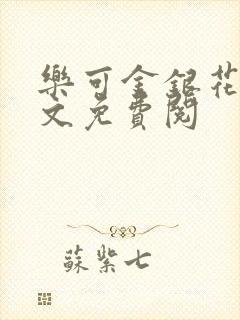 樂可金銀花
文免費閱
蘇紫七